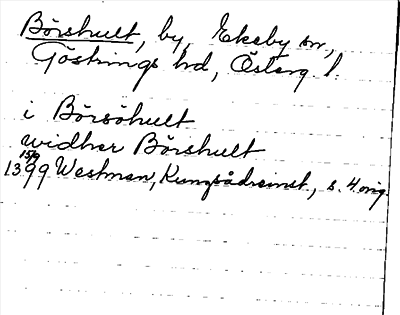 Börshult, by, Ekeby sn,
Göstrings hd, Österg l.
i Börsöhult
widher Börshult
15/9
1399 Westman, Kungsådreinst., s. 4 orig.